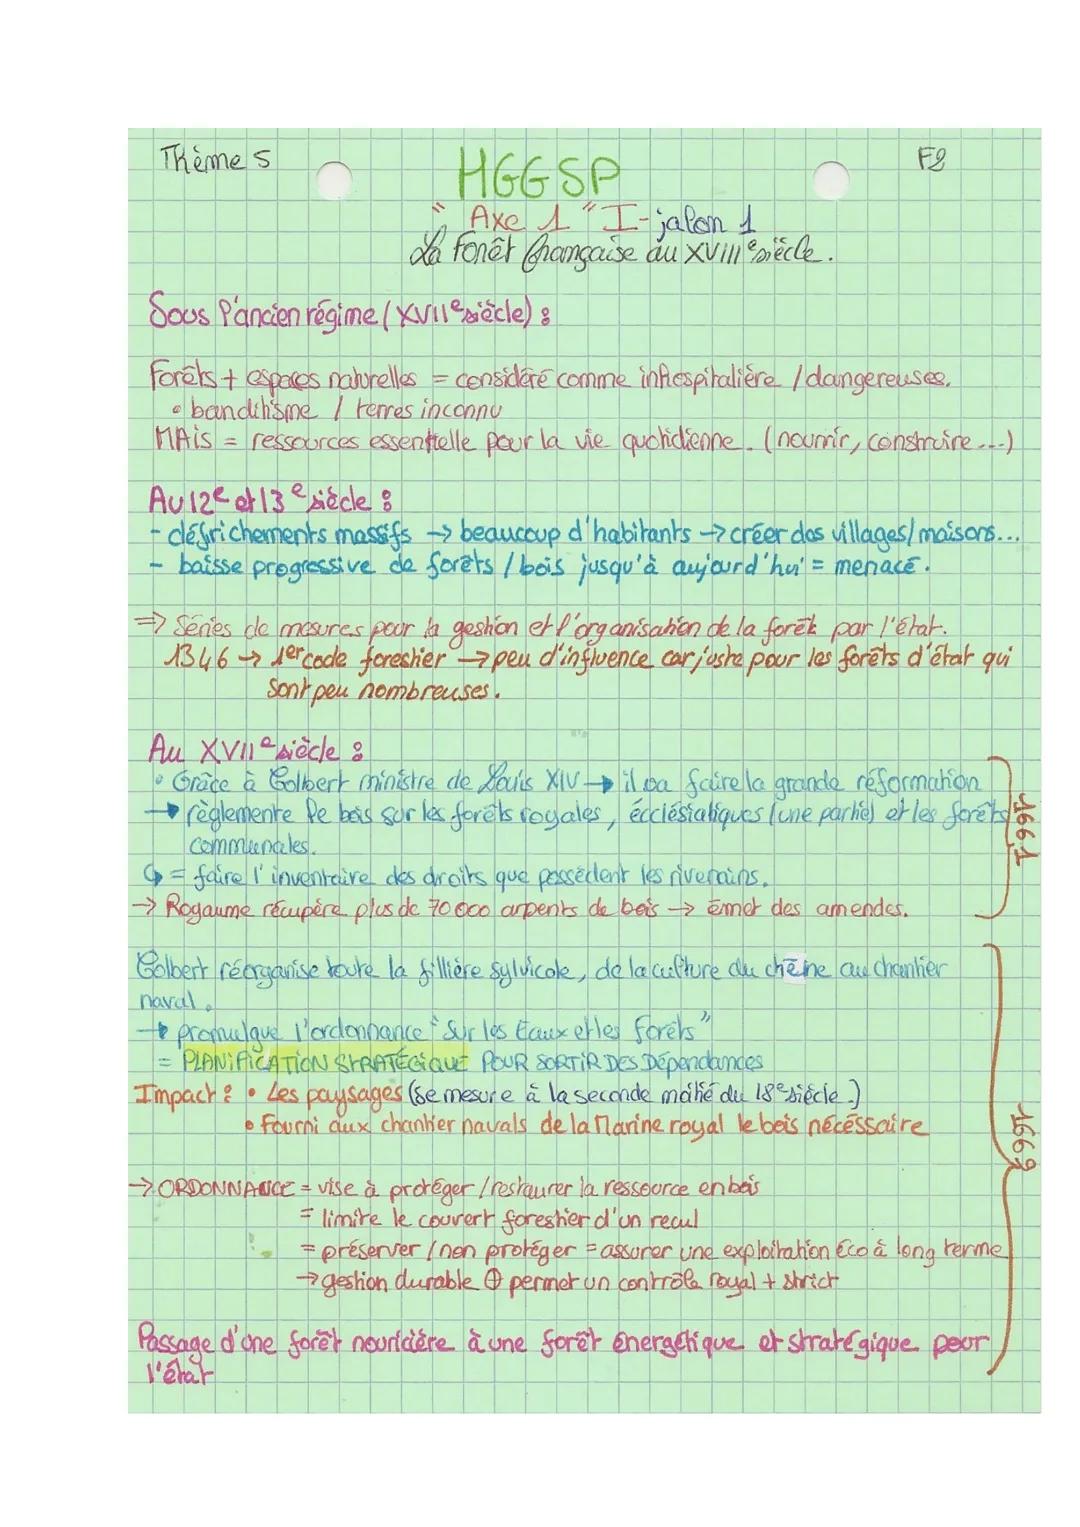 Thème 5
HGGSP
F2
"Axe 1" I- jalon 1
La Forêt française au XVIIIe siècle.
Sous l'ancien régime (XVIIe siècle) :
Forêts + espaces naturelles = considéré comme inhospitalière / dangereuses.
• banditisme / terres inconnu
MAis = ressources essentielle pour la vie quotidienne. (nourrir, construire...)
Au 12e et 13e siècle :
- défrichements massifs → beaucoup d'habitants → créer des villages/maisons...
- baisse progressive de forêts / bois jusqu'à aujourd'hui = menacé.
⇒ Séries de mesures pour la gestion et l'organisation de la forêt par l'état.
1346 → 1er code forestier → peu d'influence car juste pour les forêts d'état qui
sont peu nombreuses.
Au XVIIe siècle :
• Grâce à Colbert ministre de Louis XIV → il va faire la grande réformation
→ règlemente le bois sur les forêts royales, écclésiatiques (une partie) et les forêts
communales.
↳ = faire l'inventaire des droits que possèdent les riverains.
→ Royaume récupère plus de 70 000 arpents de bois → émet des amendes.
1661
Colbert réorganise toute la fillière sylvicole, de la culture du chêne au chantier
naval.
→ promulgue l'ordonnance "Sur les Eaux et les forêts"
= PLANiFiCATiON STRATÉGiQUE POUR SORTiR DES Dépendances
Impact : • Les paysages (se mesure à la seconde moitié du 18e siècle.)
• Fourni aux chantier navals de la Marine royal le bois nécéssaire
1669
→ ORDONNANCE = vise à protéger / restaurer la ressource en bois
= limite le couvert forestier d'un recul
= préserver / non protéger = assurer une exploitation éco à long terme
→ gestion durable ⊕ permet un contrôle royal + strict
Passage d'une forêt nouricière à une forêt énergétique et stratégique pour
l'état